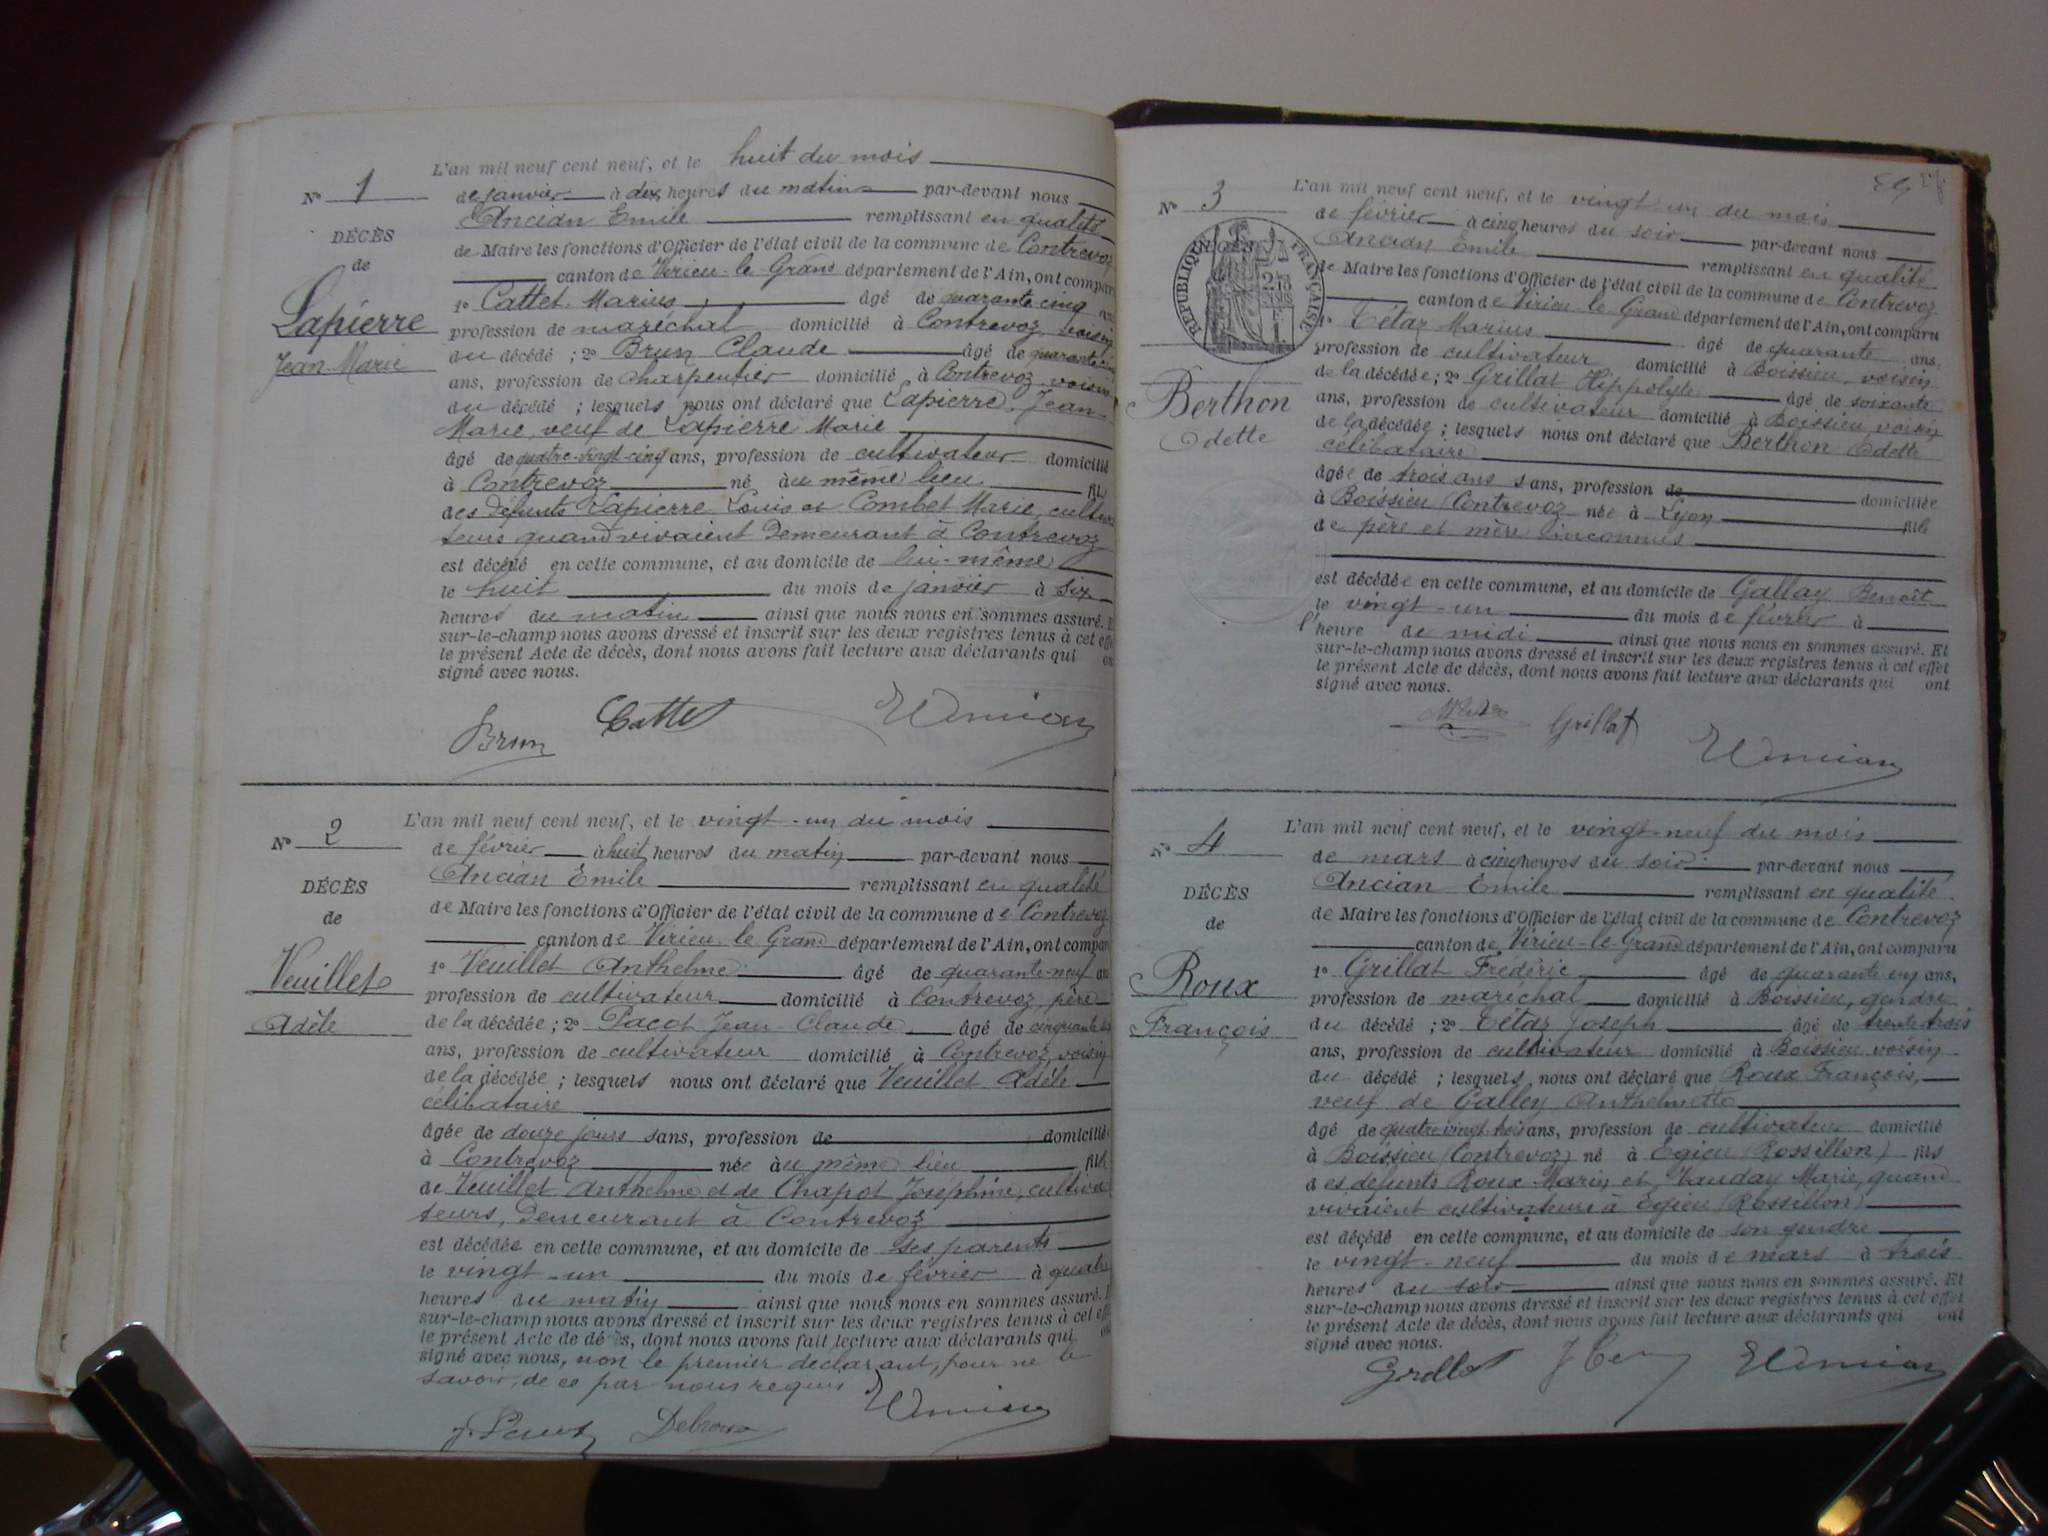 N° 1
DÉCÈS
de
Lapierre
Jean Marie
L'an mil neuf cent neuf, et le huit du mois
de janvier à dix heures du matin par-devant nous
Ancian Emile remplissant en qualité
de Maire les fonctions d'Officier de l'état civil de la commune de Contrevoz
canton de Virieu-le-Grand département de l'Ain, ont compar
1° Cattet Marius âgé de quarante cinq
profession de maréchal domicilié à Contrevoz, voisin
du décédé ; 2° Brun Claude âgé de quarante
ans, profession de charpentier domicilié à Contrevoz voisin
du décédé ; lesquels nous ont déclaré que Lapierre, Jean-
Marie, veuf de Lapierre Marie
âgé de quatre-vingt-cinq ans, profession de cultivateur domicilié
à Contrevoz né au même lieu fils
des défunts Lapierre Louis et Combet Marie, cultiva
teurs quand vivaient demeurant à Contrevoz
est décédé en cette commune, et au domicile de lui-même
le huit du mois de janvier à six
heures du matin ainsi que nous nous en sommes assuré. E
sur-le-champ nous avons dressé et inscrit sur les deux registres tenus à cet effe
le présent Acte de décès, dont nous avons fait lecture aux déclarants qui on
signé avec nous.
Brun Cattet EAncian
N° 2
DÉCÈS
de
Veuillet
Adèle
L'an mil neuf cent neuf, et le vingt-un du mois
de février à huit heures du matin par-devant nous
Ancian Emile remplissant en qualité
de Maire les fonctions d'Officier de l'état civil de la commune de Contrevoz
canton de Virieu-le-Grand département de l'Ain, ont compar
1° Veuillet Anthelme âgé de quarante-neuf ans
profession de cultivateur domicilié à Contrevoz, père
de la décédée ; 2° Pacot Jean-Claude âgé de cinquante
ans, profession de cultivateur domicilié à Contrevoz, voisin
de la décédée ; lesquels nous ont déclaré que Veuillet Adèle
célibataire
âgée de douze jours sans, profession de domiciliée
à Contrevoz née au même lieu fille
de Veuillet Anthelme et de Chapot Joséphine, cultiva
teurs, demeurant à Contrevoz
est décédée en cette commune, et au domicile de ses parents
le vingt-un du mois de février à quatre
heures du matin ainsi que nous nous en sommes assuré. E
sur-le-champ nous avons dressé et inscrit sur les deux registres tenus à cet eff
le présent Acte de décès, dont nous avons fait lecture aux déclarants qui on
signé avec nous, non le premier déclarant, pour ne le
savoir, de ce par nous requis
EAncian
N° 3
RÉPUBLIQUE FRANÇAISE
Berthon
Odette
L'an mil neuf cent neuf, et le vingt-un du mois
de février à cinq heures du soir par-devant nous
Ancian Emile remplissant en qualité
de Maire les fonctions d'Officier de l'état civil de la commune de Contrevoz
canton de Virieu-le-Grand département de l'Ain, ont comparu
1° Tétaz Marius âgé de quarante ans,
profession de cultivateur domicilié à Boissieu, voisin
de la décédée ; 2° Grillat Hippolyte âgé de soixante
ans, profession de cultivateur domicilié à Boissieu voisin
de la décédée ; lesquels nous ont déclaré que Berthon Odette
célibataire
âgée de trois ans sans, profession de domiciliée
à Boissieu (Contrevoz née à Lyon fille
de père et mère inconnus
est décédée en cette commune, et au domicile de Gallay Benoît
le vingt-un du mois de février à
l'heure de midi ainsi que nous nous en sommes assuré. Et
sur-le-champ nous avons dressé et inscrit sur les deux registres tenus à cet effet
le présent Acte de décès, dont nous avons fait lecture aux déclarants qui ont
signé avec nous.
Grillat EAncian
N° 4
DÉCÈS
de
Roux
François
L'an mil neuf cent neuf, et le vingt-neuf du mois
de mars à cinq heures du soir par-devant nous
Ancian Emile remplissant en qualité
de Maire les fonctions d'Officier de l'état civil de la commune de Contrevoz
canton de Virieu-le-Grand département de l'Ain, ont comparu
1° Grillat Frédéric âgé de quarante un ans,
profession de maréchal domicilié à Boissieu, gendre
du décédé ; 2° Tétaz Joseph âgé de trente-trois
ans, profession de cultivateur domicilié à Boissieu voisin
du décédé ; lesquels nous ont déclaré que Roux François,
veuf de Galley Anthelmette
âgé de quatre vingt trois ans, profession de cultivateur domicilié
à Boissieu (Contrevoz) né à Egieu (Rossillon) fils
des défunts Roux Marin et Vauday Marie, quand
vivaient cultivateurs à Egieu (Rossillon)
est décédé en cette commune, et au domicile de son gendre
le vingt-neuf du mois de mars à trois
heures du soir ainsi que nous nous en sommes assuré. Et
sur-le-champ nous avons dressé et inscrit sur les deux registres tenus à cet effet
le présent Acte de décès, dont nous avons fait lecture aux déclarants qui ont
signé avec nous.
Grillat EAncian